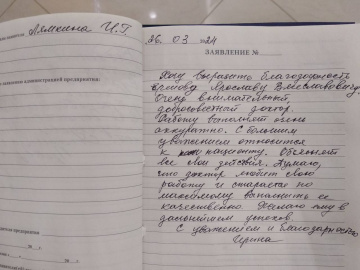 Алмкина И.Г.
администрации предприятия:
26. 03 2024
ЗАЯВЛЕНИЕ №
Хочу выразить благодарность
Ярославу Вячеславовичу.
Очень внимательный,
добросовестный доктор.
Работу выполняет очень
аккуратно. С большим
уважением относится
к пациенту. Объясняет
все свои действия. Думаю,
что доктор любит свою
работу и старается по
максимому выполнить ее
качественно. Желаю ему в
дальнейшем успехов.
С уважением и благодарностью
Ирина